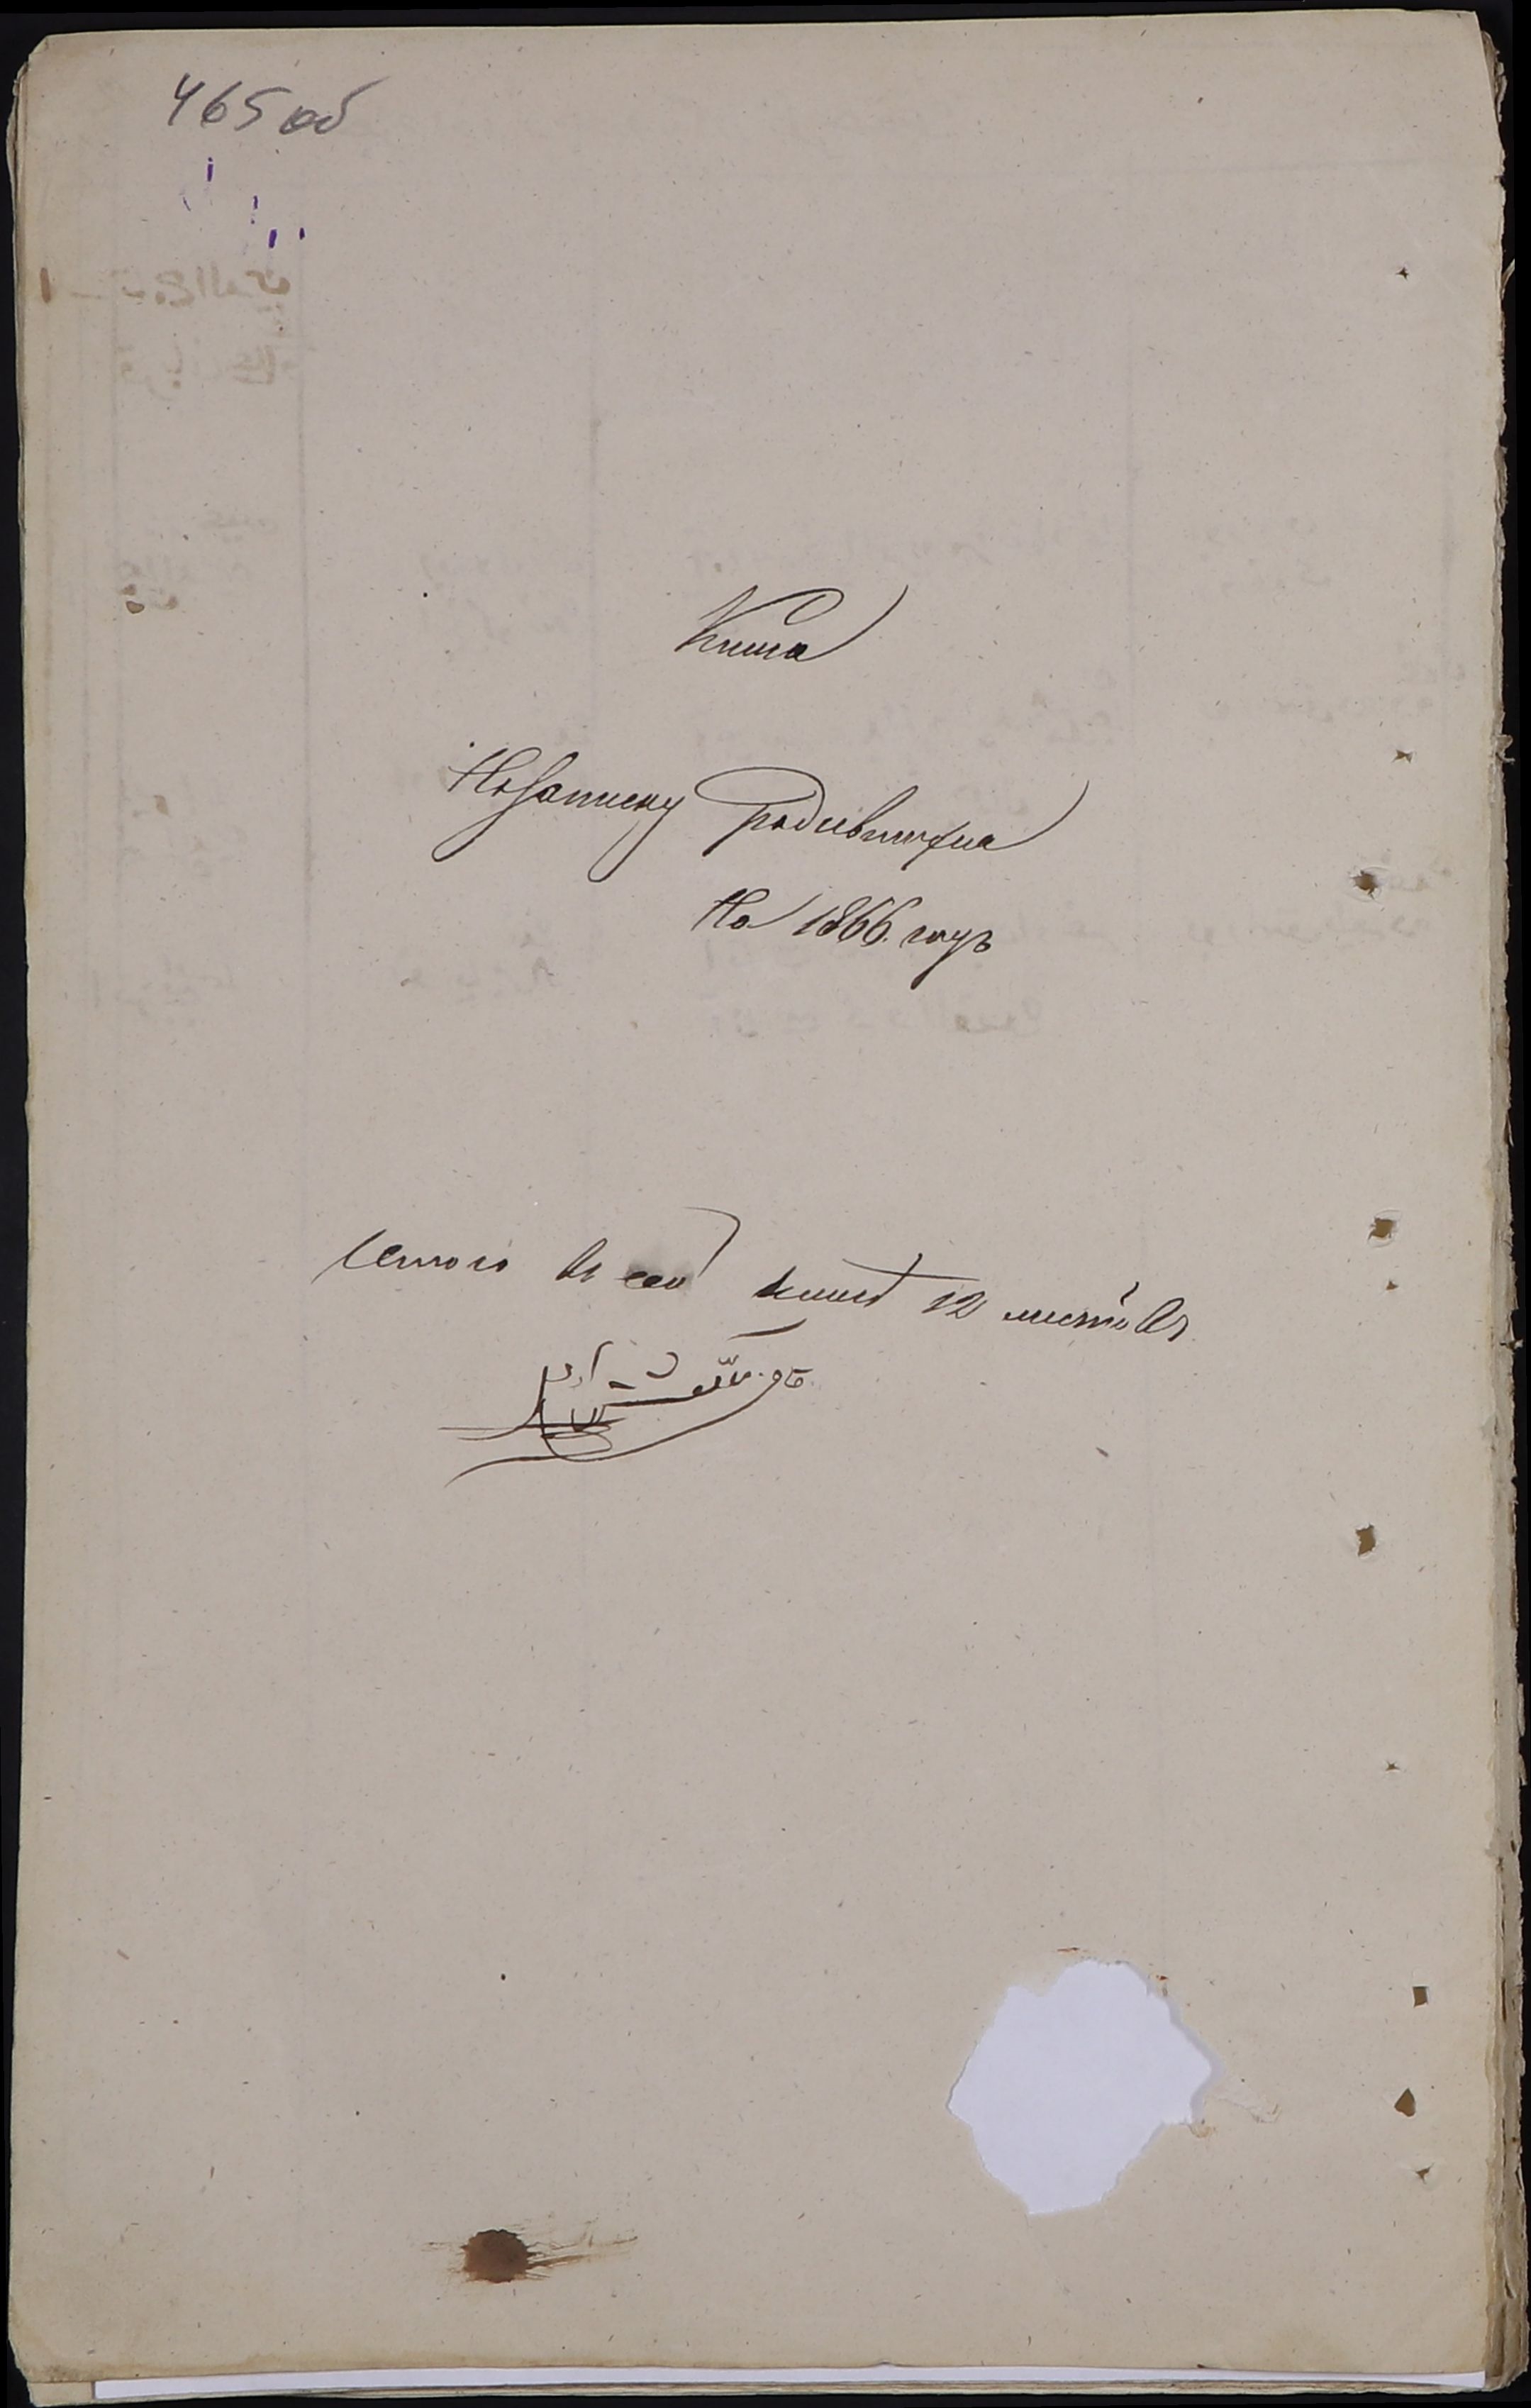 465 об
Книга
На записку родившихся
На 1866 годъ
Итого въ сей книге 12 листовъ